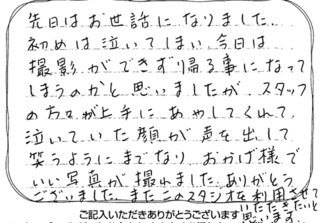 先日はお世話になりました.
初めは泣いてしまい、今日は
撮影ができず帰る事になって
しまうのかと思いましたが、スタッフ
の方々が上手にあやしてくれて、
泣いていた顔が声を出して
笑うようにまでなり おかげ様で
いい写真が撮れました。ありがとう
ございました。またこのスタジオを利用させて
いただきたいと
思います。
ご記入いただきありがとうございます